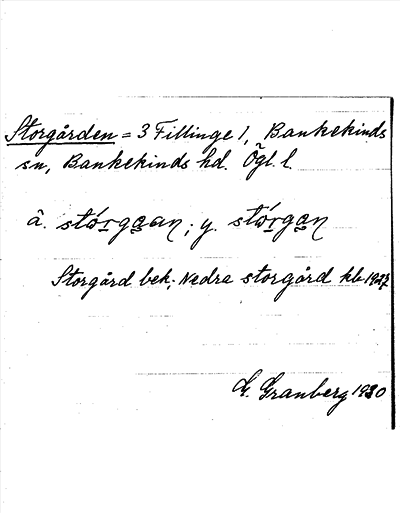 Storgården = 3 Fillinge 1, Bankekinds
sn, Bankekinds hd. Ögl. l.
â. stórgaan; y. stórgan
Storgård bek; Nedre storgård kb 1927
G. Granberg 1930